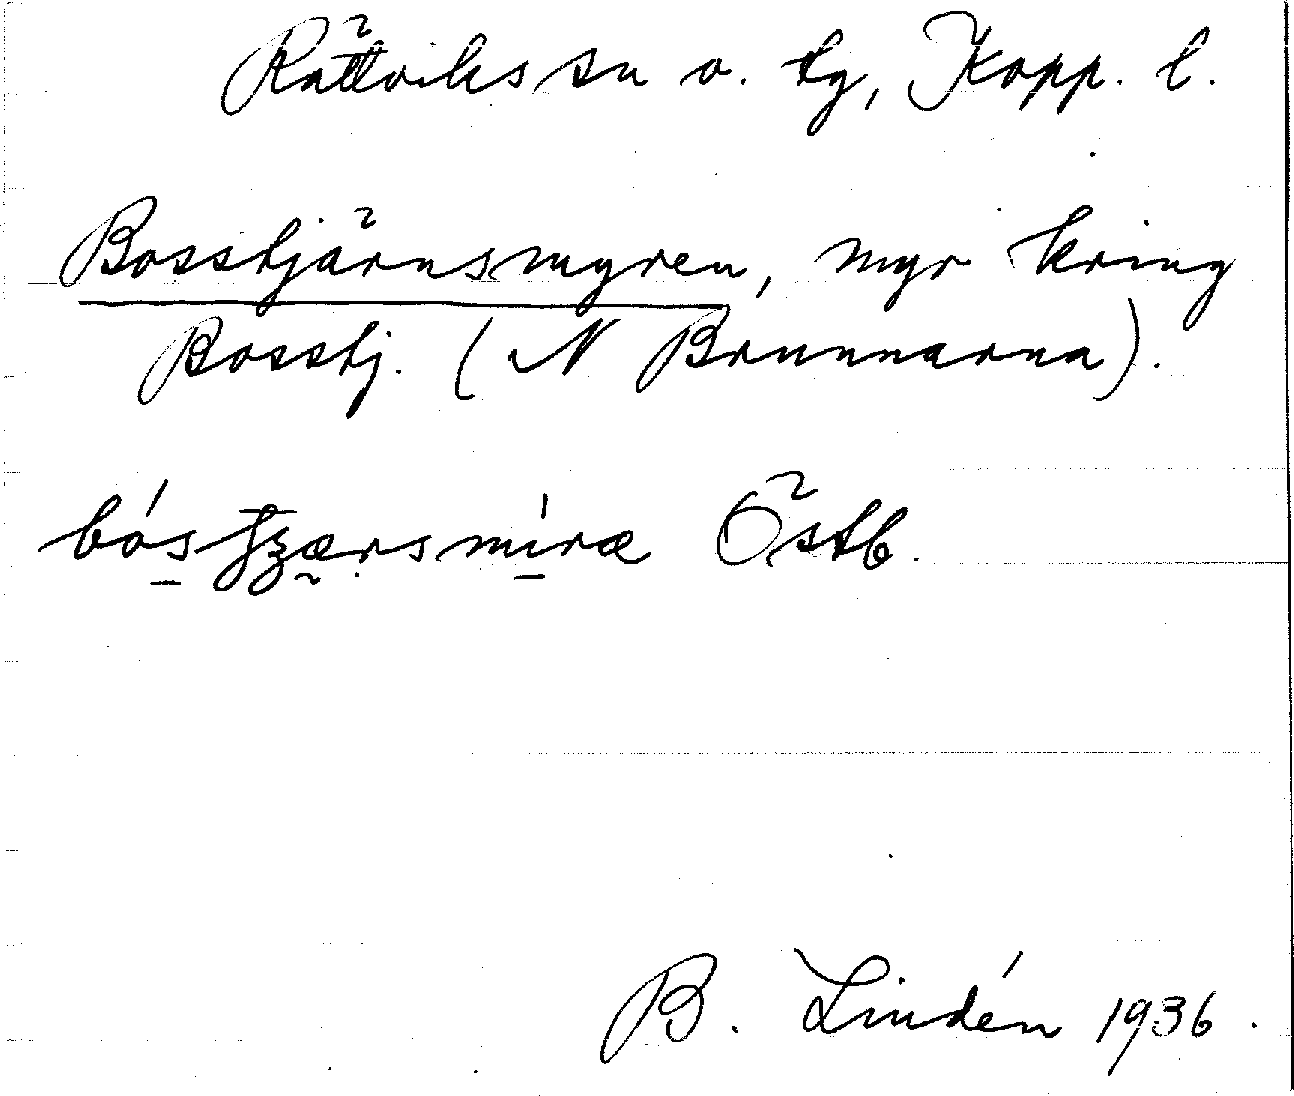 Rättviks sn o. tg, Kopp. l.
Bosstjärnsmyren, myr kring
Bosstj. (N Brunnarna).
Östb.
B. Lindén 1936.